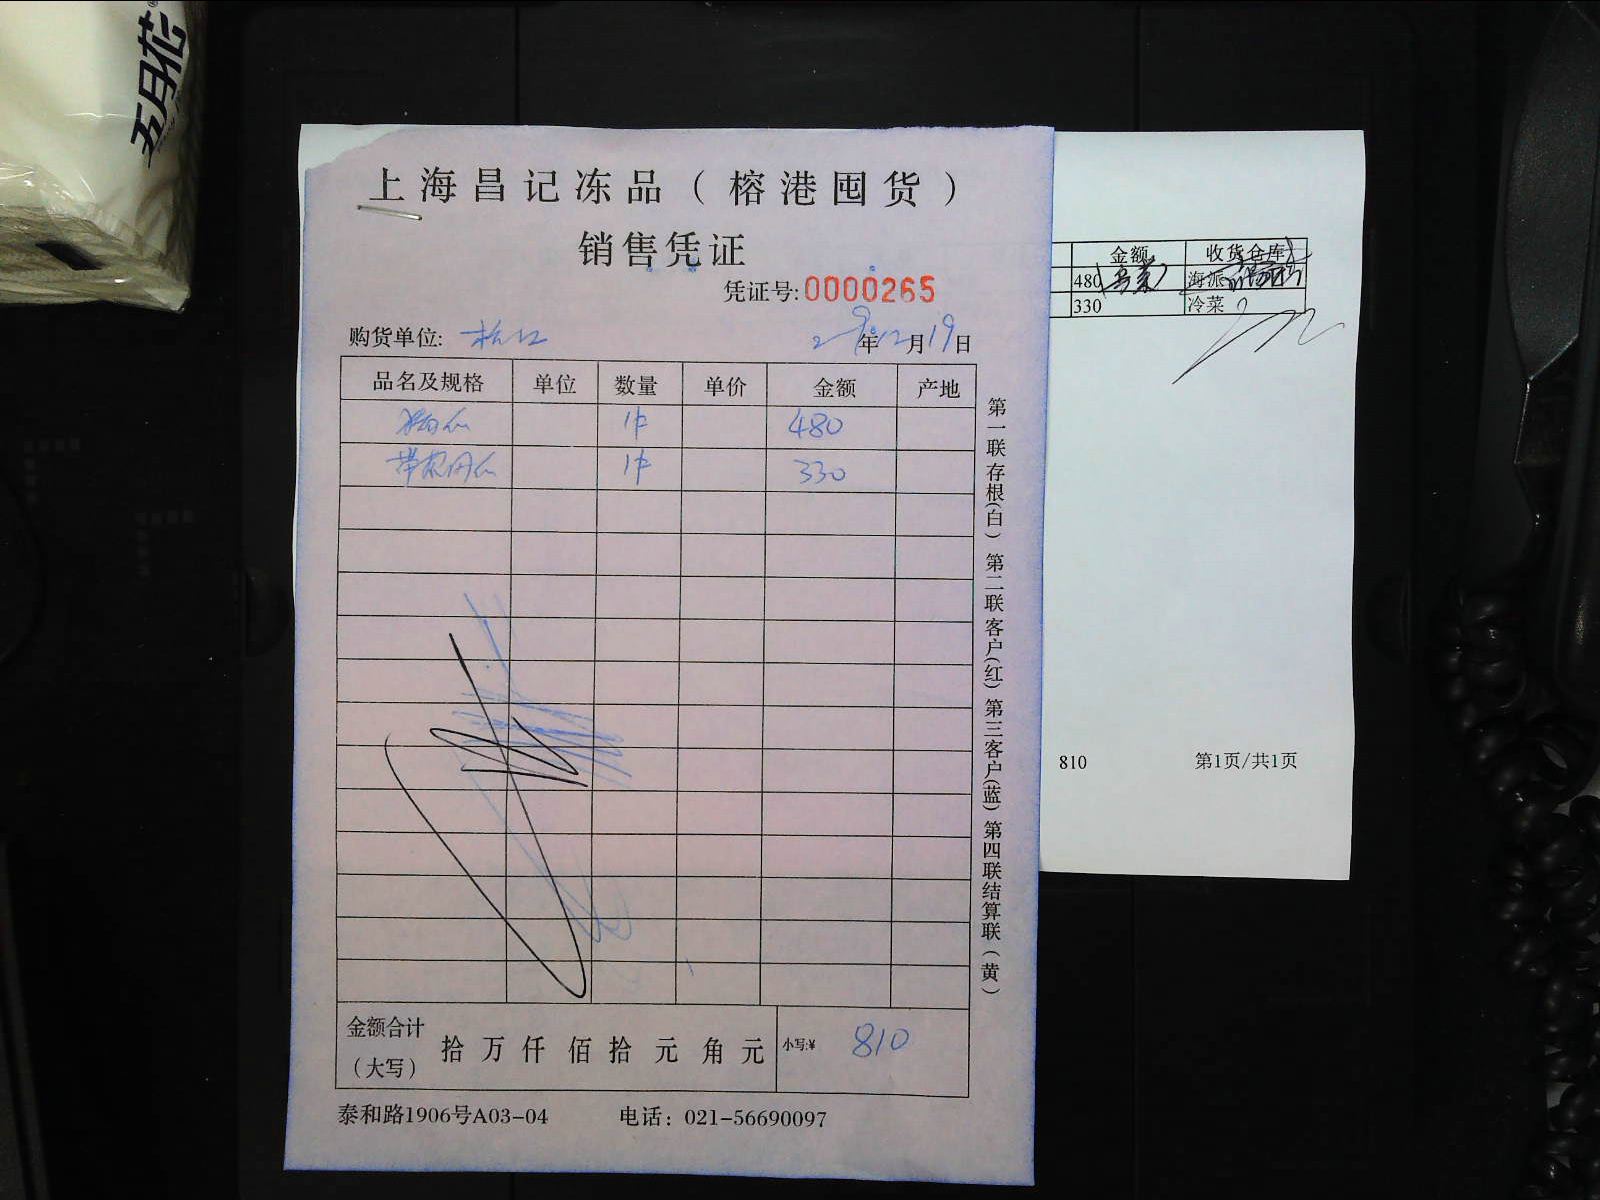 五月花
上海昌记冻品（榕港囤货）
销售凭证
凭证号:0000265
购货单位:
年12月19日
品名及规格 单位 数量 单价 金额 产地
1件 480
1件 330
金额合计（大写） 拾 万 仟 佰 拾 元 角 元 小写:¥ 810
泰和路1906号A03-04 电话：021-56690097
第一联存根(白) 第二联客户(红) 第三客户(蓝) 第四联结算联(黄)
金额 收货仓库
480 海派
330 冷菜
810 第1页/共1页